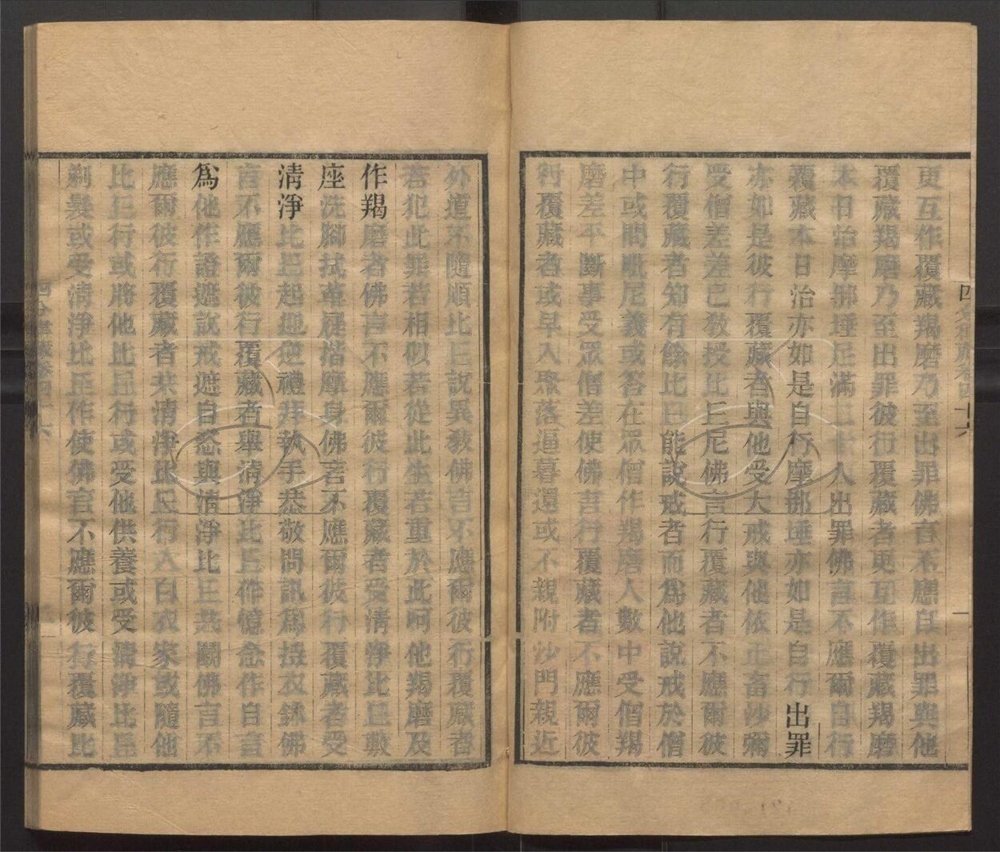 更互作覆藏羯磨乃至出罪佛言不應自出罪與他
覆藏羯磨乃至出罪彼行覆藏者更互作覆藏羯磨
本日治摩那埵尼滿二十人出罪佛言不應爾自行
覆藏本日治亦如是自行摩那埵亦如是自行出罪
亦如是彼行覆藏者與他受大戒與他依止畜沙彌
受僧差差已教授比丘尼佛言行覆藏者不應爾彼
行覆藏者知有餘比丘能說戒者而為他說戒於僧
中或問毗尼義或答在眾僧作羯磨人數中受僧羯
磨差平斷事受眾僧差使佛言行覆藏者不應爾彼
行覆藏者或早入聚落逼暮還或不親附沙門親近
外道不隨順比丘說異教佛言不應爾彼行覆藏者
若犯此罪若相似若從此生若重於此呵他羯磨及
作羯磨者佛言不應爾彼行覆藏者受清淨比丘敷
座洗腳拭革屣揩摩身佛言不應爾彼行覆藏者受
清淨比丘起迎逆禮拜執手恭敬問訊為捉衣鉢佛
言不應爾彼行覆藏者舉清淨比丘作憶念作自言
為他作證遮說戒遮自恣與清淨比丘共鬬佛言不
應爾彼行覆藏者共清淨比丘行入白衣家或隨他
比丘行或將他比丘行或受他供養或受清淨比丘
剃髮或受清淨比丘作使佛言不應爾彼行覆藏比